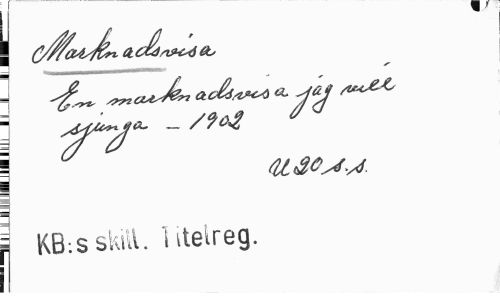 Marknadsvisa
En marknadsvisa jag vill
sjunga – 1902
U 20 s.s.
KB:s skill. Titelreg.